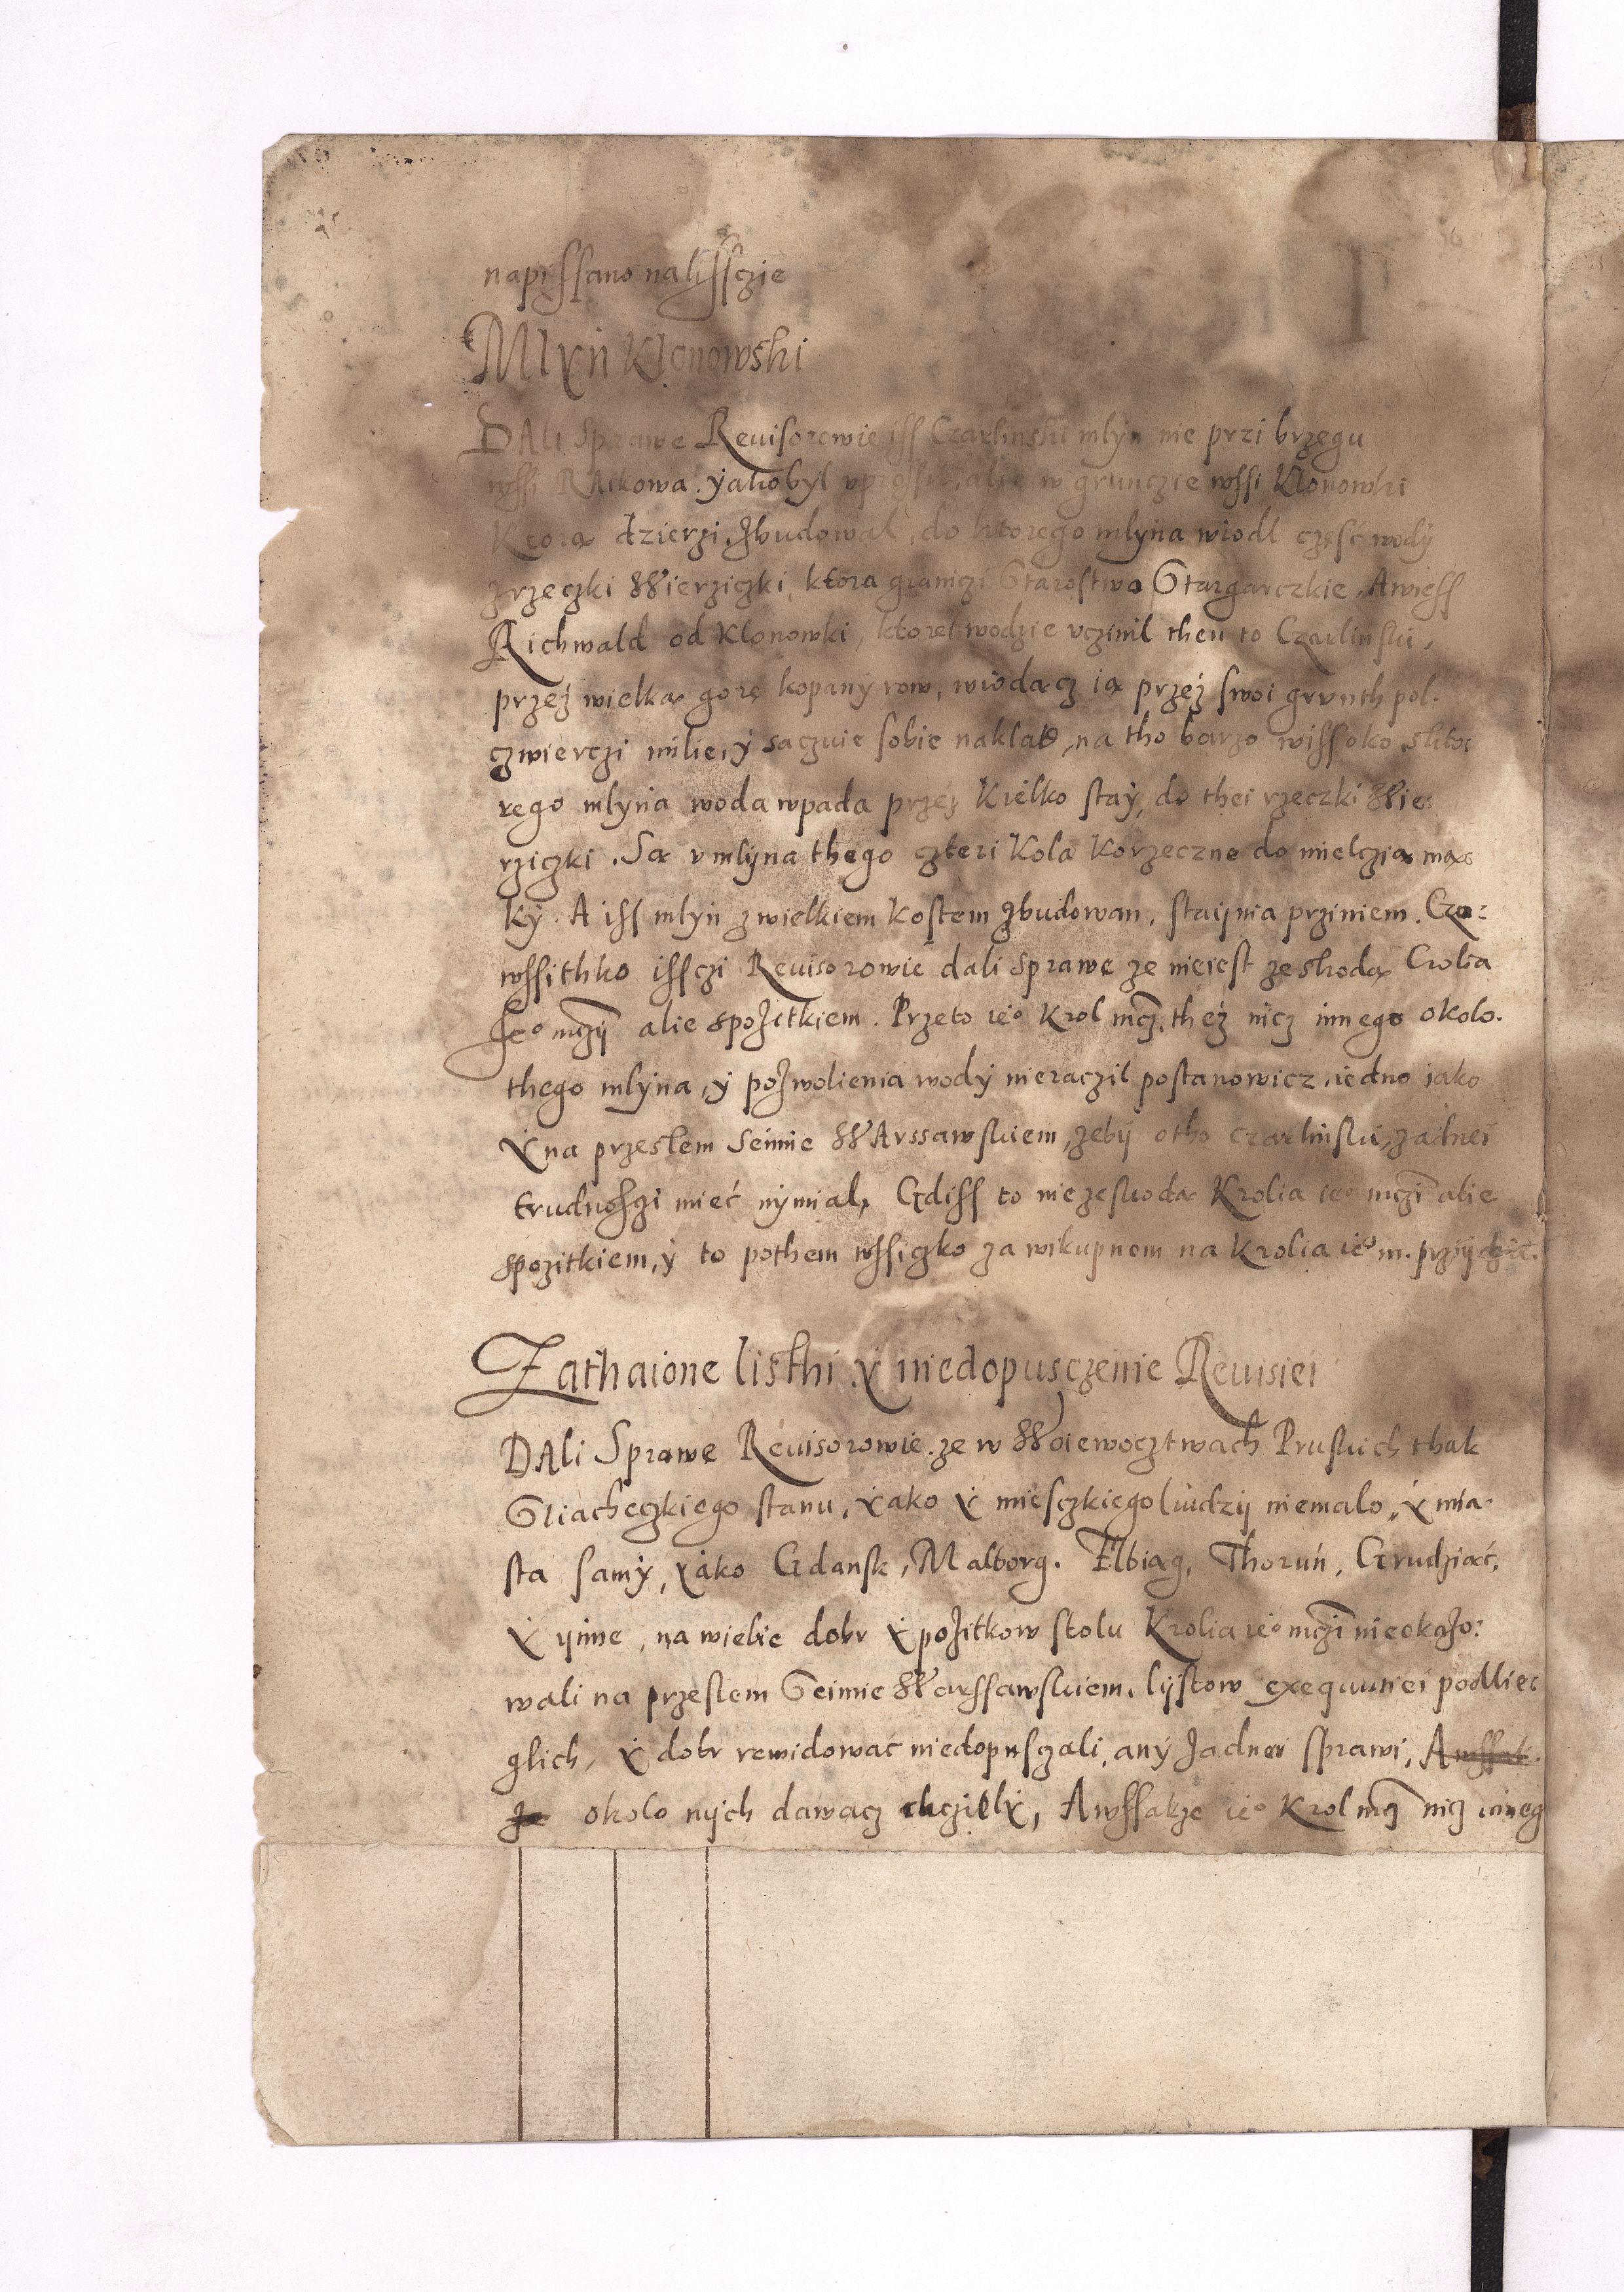 napissano na lissczie
Mlyn Klonowski
DAli Sprawe Reuisorowie iss Czarlinski mlyn nie przi brzegu
wssi RAikowa yakobyl vprossil, alie w grunczie wssi Klonowki
Ktora dzierzi, zbudowal, do ktorego mlyna wiodl część wody
zrzeczki Wierziczki, ktora graniczi Starostwo Stargarczkie, A wiess
Richwald od Klonowki, ktorei wodzie vczinil then to Czarlinski,
przez wielka gorę kopany row, wiodacz ia przez swoi grunth pol.
czwierczi milie, y saczuie sobie naklad, na tho barzo wissoko skto:
rego mlyna woda wpada przez Kielko stay, do thei rzeczki Wie:
rziczki. Sa v mlyna thego czteri Kola Korzeczne do mielczia ma:
ky. A iss mlyn z wielkiem Kostem zbudowan, staynia prziniem. Czo:
wssithko issczi Reuisorowie dali Sprawe ze nieiest ze skoda Crolia
Jeo mczy alie spozitkiem. Przeto ieo Krol mcz, thez nicz innego okolo.
thego mlyna, y pozwolienia wody nieraczil postanowicz, iedno iako
y na przeslem Seimie WArssawskiem, zeby otho Czarlinski, zadnei
trudnosczi mieć nymial, Gdiss to nie ze skoda Krolia ieo mczi alie
spozitkiem, y to pothem wssiczko za wikupnem na Krolia ieo m. przydzie.
Zathaione listhi y niedopusczenie Reuisiei
DAli Sprawe Reuisorowie. ze w Woiewocztwach Pruskich thak
Sliacheczkiego stanu, yako y miesczkiego ludzy niemalo, y mia.
sta samy, yako Gdansk, Malborg. Elbiag, Thoruń, Grudziać,
y ynne, na wielie dobr y pozitkow stolu Krolia ieo mczi nieokazo:
wali na przeslem Seimie Warssawskiem, lystow exequuniei podlie:
glich, y dobr rewidować niedopusczali, any zadnei sprawi, Awssak.
Je okolo nych dawacz chczieli, Awssakze ieo Krol mcz nicz inneg